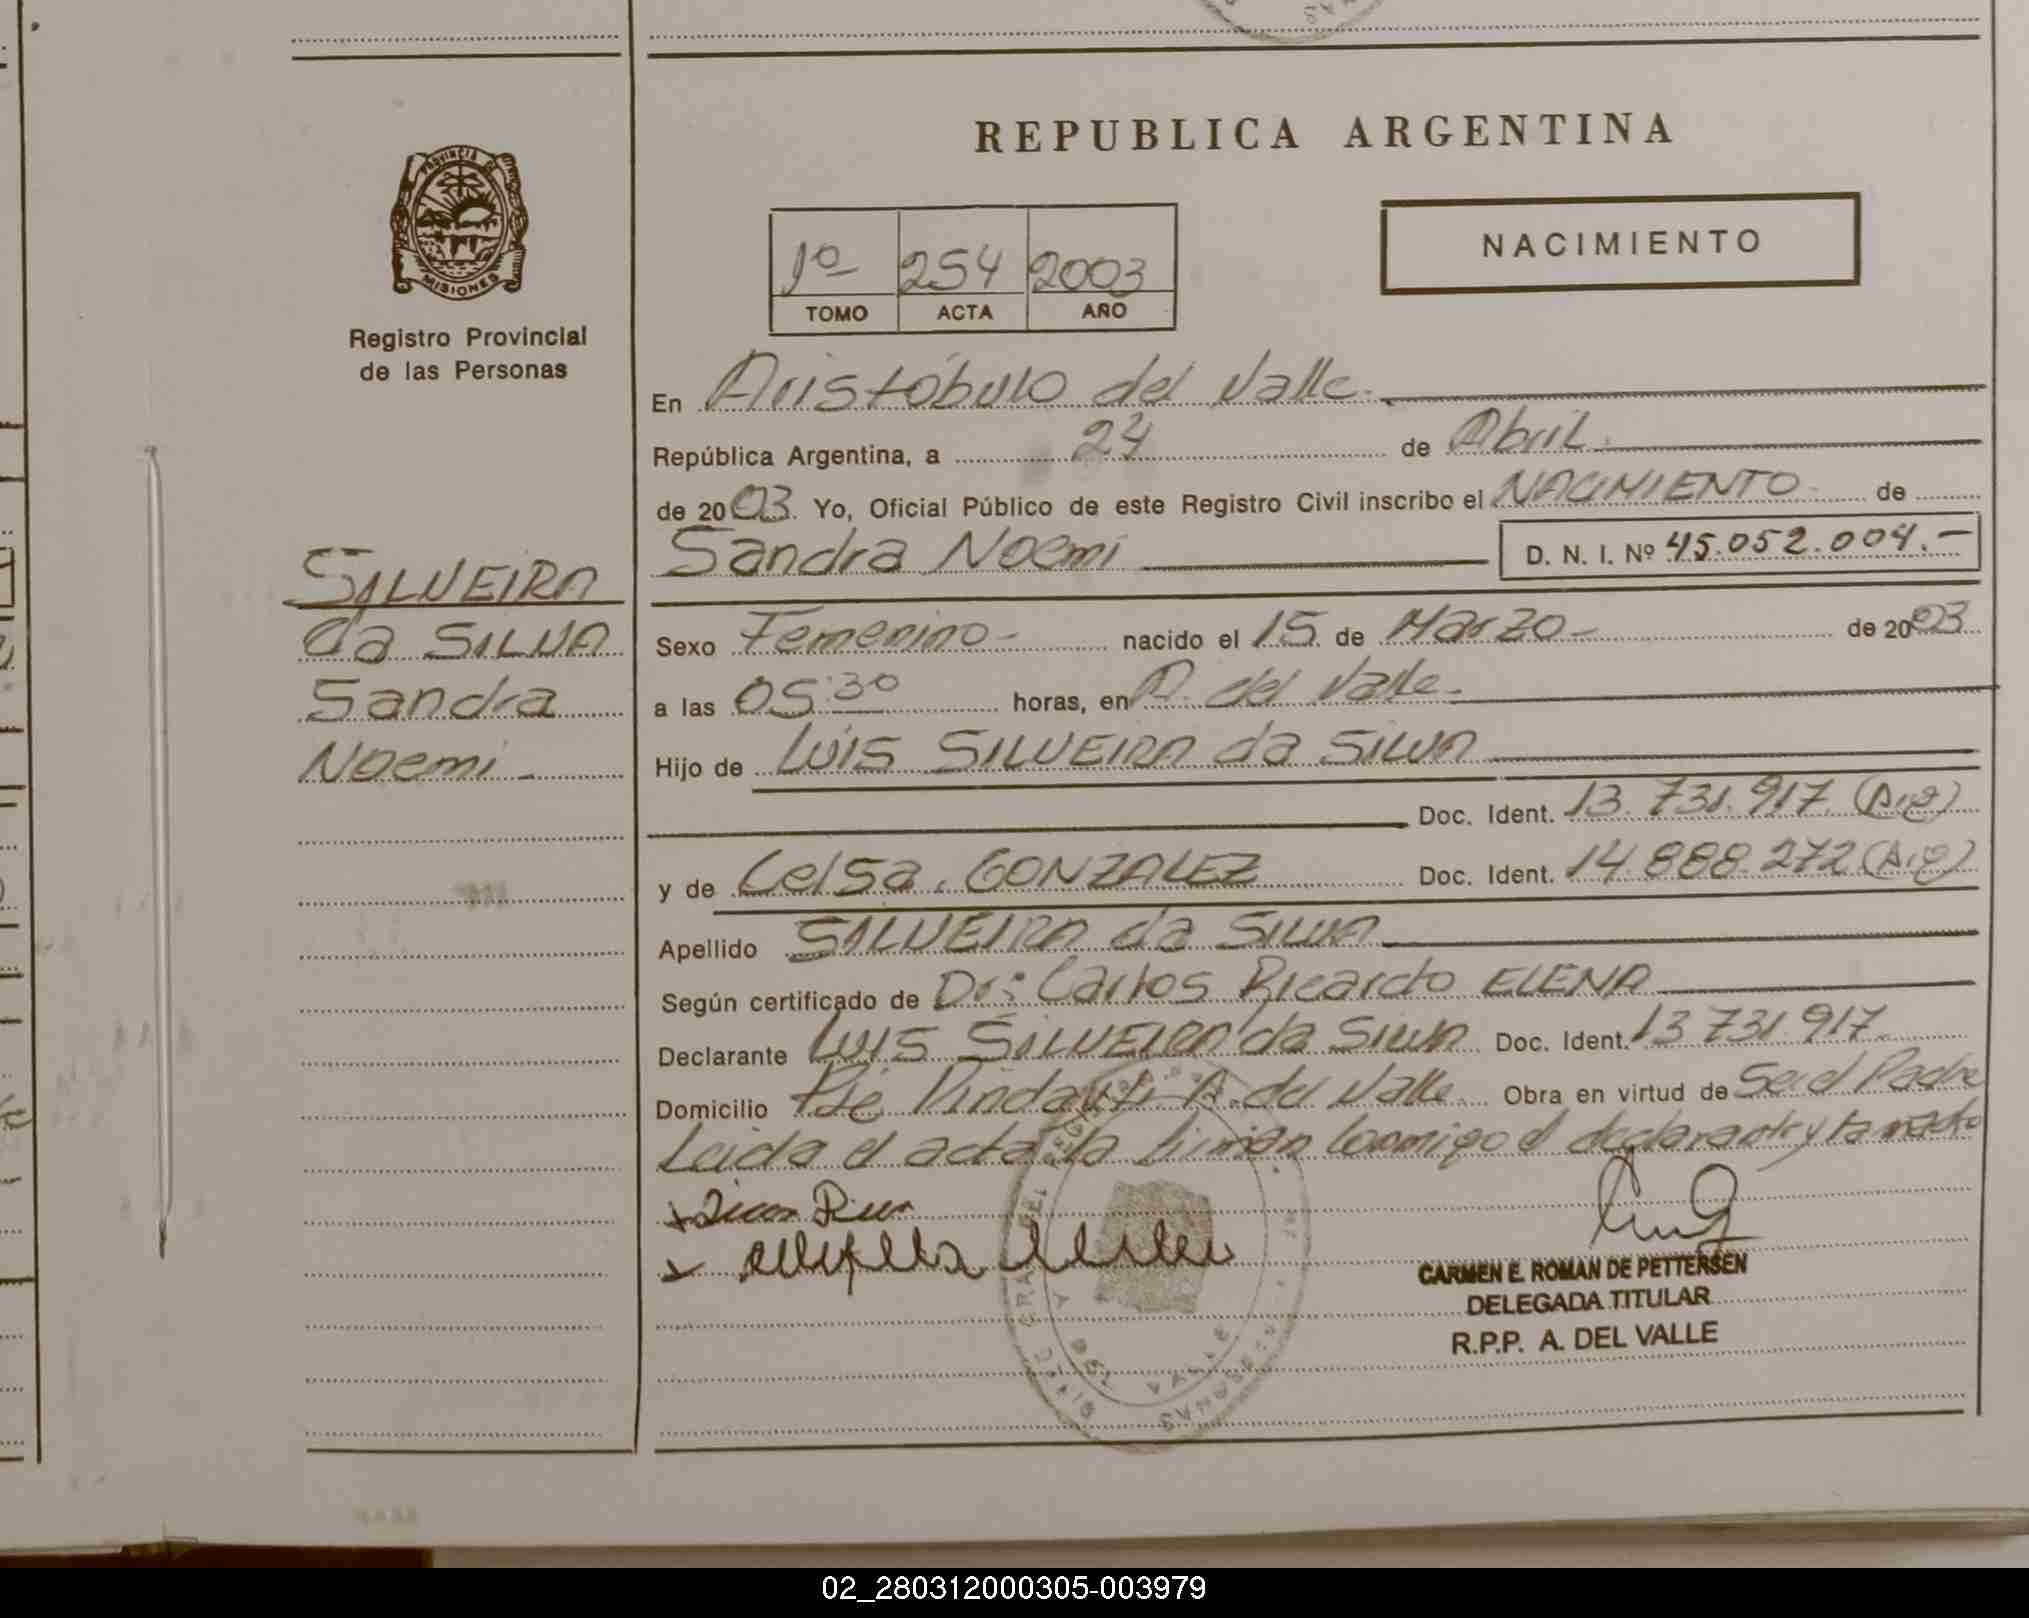 REPUBLICA ARGENTINA
PROVINCIA DE
MISIONES
Registro Provincial
de las Personas
1º 254 2003
TOMO ACTA AÑO
NACIMIENTO
En Aristóbulo del Valle.
República Argentina, a 24 de Abril.
de 2003. Yo, Oficial Público de este Registro Civil inscribo el NACIMIENTO de
Sandra Noemi D. N. I. Nº 45.052.004.-
SILVEIRA
da SILVA
Sandra
Noemi
Sexo Femenino- nacido el 15 de Marzo- de 2003
a las 05:30 horas, en A. del Valle.
Hijo de Luis SILVEIRA da SILVA
Doc. Ident. 13.731.917 (Arg)
y de Celsa. GONZALEZ Doc. Ident. 14.888.272 (Arg)
Apellido SILVEIRA da SILVA
Según certificado de Dr: Carlos Ricardo ELENA
Declarante Luis SILVEIRA da SILVA Doc. Ident. 13 731.917
Domicilio A. del Valle. Obra en virtud de Ser el Padre
Leida el acta la firman conmigo el declarante y la madre
CARMEN E. ROMAN DE PETTERSEN
DELEGADA TITULAR
R.P.P. A. DEL VALLE
02_280312000305-003979